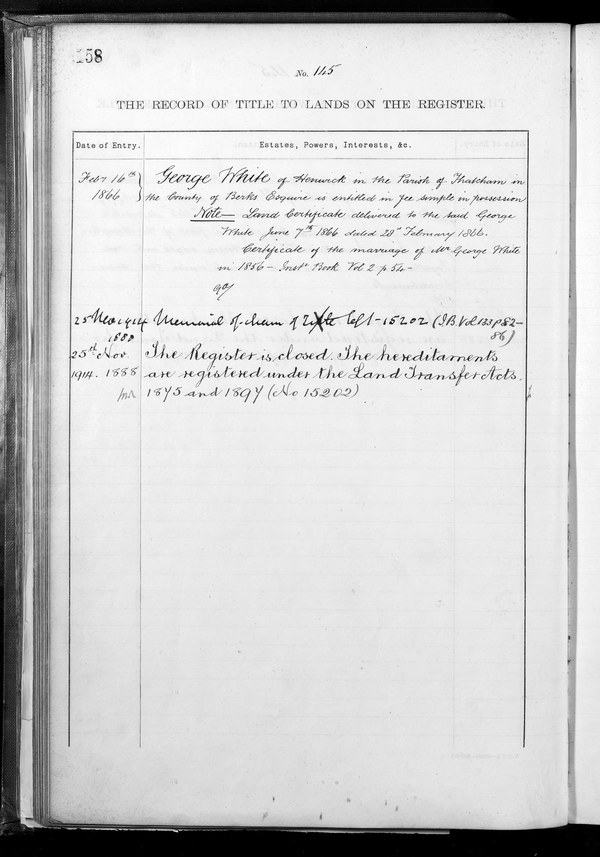 158
No. 145
THE RECORD OF TITLE TO LANDS ON THE REGISTER.
Date of Entry. Estates, Powers, Interests, &c.
Feby 16th 1866 George White of Henwick in the Parish of Thatcham in
the County of Berks Esquire is entitled in fee simple in possession
Note— Land Certificate delivered to the said George
White June 7th 1866 dated 28th February 1866.
Certificate of the marriage of Mr George White
in 1856 - Inst. Book Vol 2 p 54 -
25 Nov 1914 Memorial of claim of Title Coft - 15202 (I.B. Vol 133 p 82-
1888 86)
25th Nov. The Register is closed. The hereditaments
1914. 1888 are registered under the Land Transfer Acts.
1875 and 1897 (No 15202)